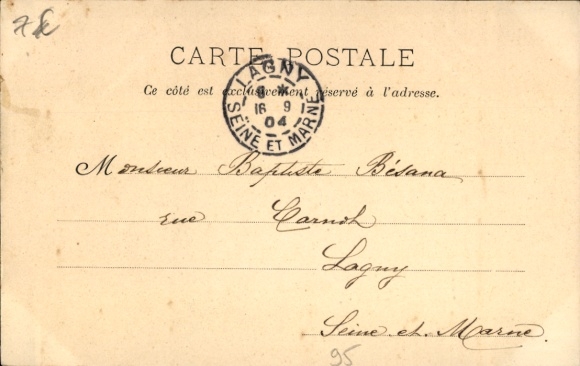 CARTE POSTALE
Ce côté est exclusivement réservé à l'adresse.
LAGNY
16 9
04
SEINE ET MARNE
Monsieur Baptiste Bésana
rue Carnot
Lagny
Seine et Marne.
95